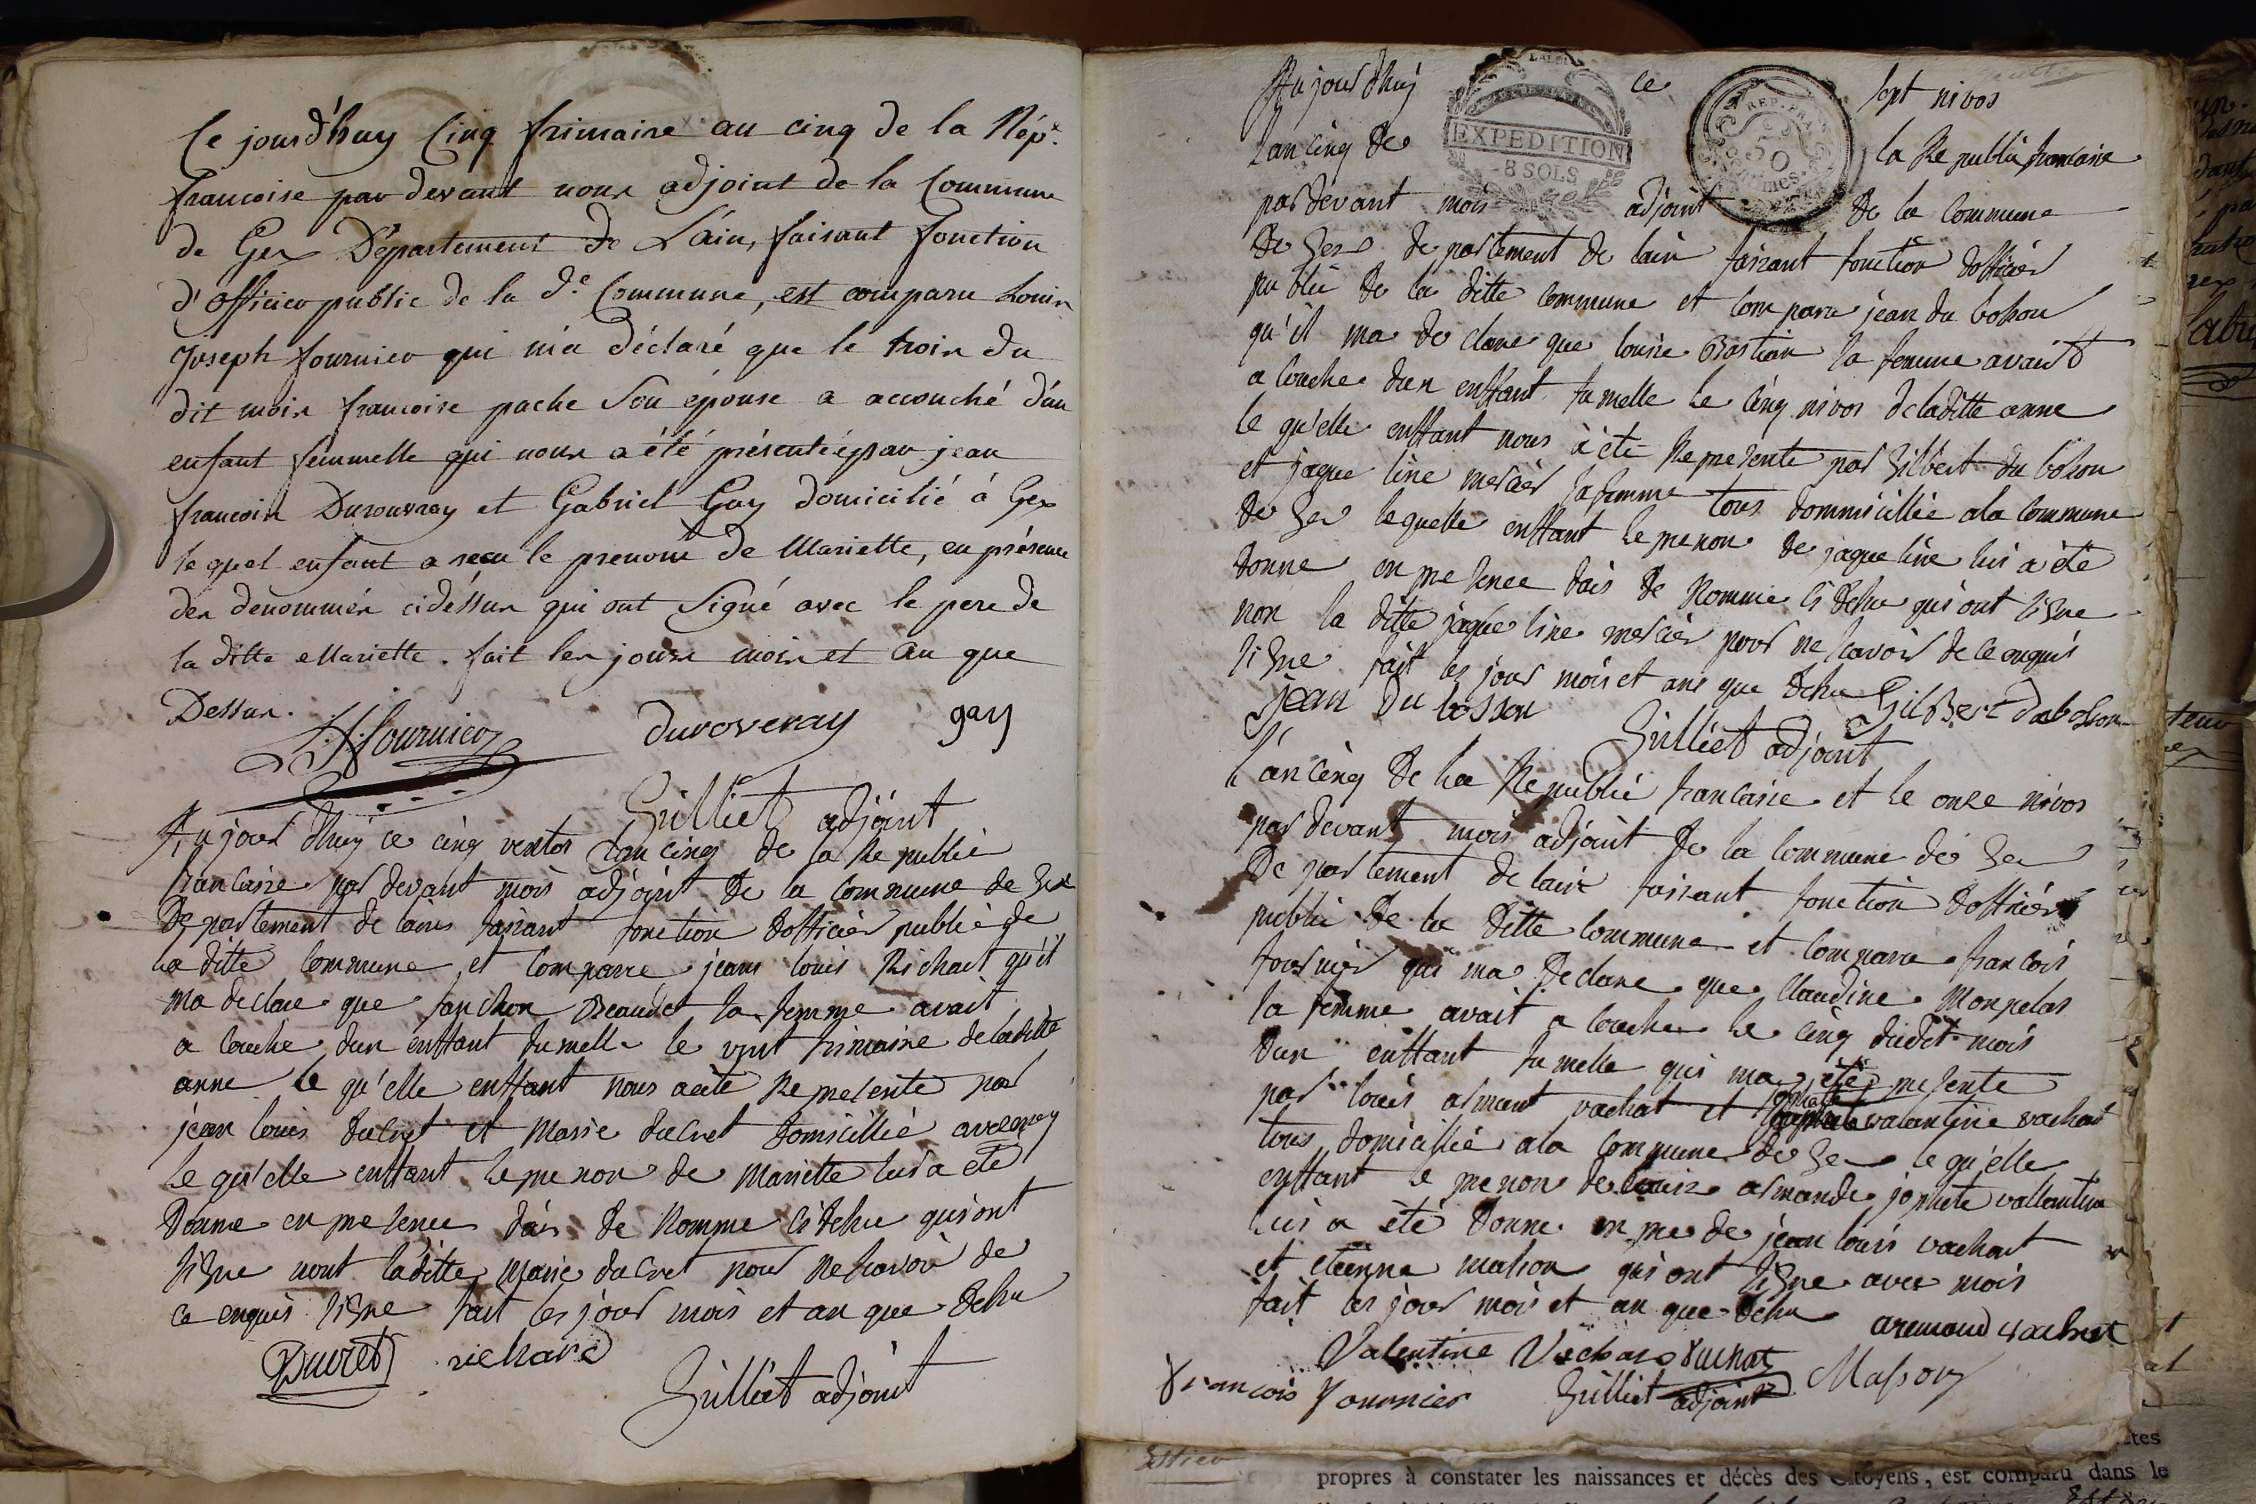 Ce jourd'huy Cinq frimaire au cinq de la Rép.e
francoise par devant nous adjoint de la Commune
de Gex Département de L'ain, faisant fonction
d'officier public de la d.e Commune, est comparu Louis
Joseph fournier qui m'a déclaré que le trois du
dit mois francoise pache Son épouse a accouché d'un
enfant femmelle qui nous a été présentée par jean
francois Durouvray et Gabriel Gay domicilié à Gex
le quel enfant a recu le prenom de Mariette, en présence
des dénommés cidéssus qui ont Signé avec le pere de
la ditte Mariette. fait les jours mois et an que
Dessus.
L. J. fournier duroveray gay
Gilliet adjoint
Au jour dhuy ce cinq ventos lan cinq de la Re publié
francaise par devant mois adjoint de la commune de Gex
De partement de lains faisant fonction dofficier publié de
la ditte commune et comparre jean louis Richart qu'il
ma declare que fanchon Beaudet sa femme avait
a couche dun enffant fumelle le vint frimaire de laditte
anne le qu'elle enffant nous a eite Represente par
jean louis ducret et Marie ducret domicillié avecnoy
le qu'elle enffant le prenon de Mariette lui a ete
donne en presence dais de Nomme ci desu quiont
signe nont laditte Marie ducret pour ne savoir de
ce enquis signe fait les jour mois et an que desu
Ducret richard
Gilliet adjoint
Au jour dhuy ce sept nivos
EXPEDITION
8 SOLS
REP. FRA.
50
lan cinq de la Re publié francaise
par devant mois adjoint de la commune
de Gex de partement de lain faisant fonction dofficier
publié de la ditte commune et comparu jean du bosson
qu'il ma de clare que louise Bastian sa femme avait
a couche dun enffant fumelle le cinq nivos de laditte anne
le qu'elle enffant nous à ete Represente par Gilbert du boson
et jaque line mercier sa femme tous dommicillie ala commune
de Gex lequelle enffant le prenon de jaque line lui a ete
donne en presence dais de Nomme ci desu qui ont signe
non la ditte jaque line mercier pour ne savoir de ce enquis
signe fait les jour mois et ans que desu
jean Du bosson Gilbert dubosson
Gilliet adjoint
L'an cinq de la Republié francaise et le onze nivos
par devant mois adjoint de la commune de Gex
De partement de lain faisant fonction dofficier
publié de la ditte commune et comparu francois
fournier qui ma declare que Claudine Monpelas
sa femme avait a couche le cinq dudit mois
dun enffant fumelle qui ma été presente
par louis armant vachat et valantine vachat
tous domicillié ala commune de Gex le qu'elle
enffant le prenon de louise armande josette vallantine
lui a été donne en pre de jean louis vachat
et etienne masson qui ont signe avec mois
fait les jour mois et an que desu aremand vachat
Valentine Vachat vachat
francois fournier Gilliet adjoint Masson
propres à constater les naissances et décès des Citoyens, est comparu dans le